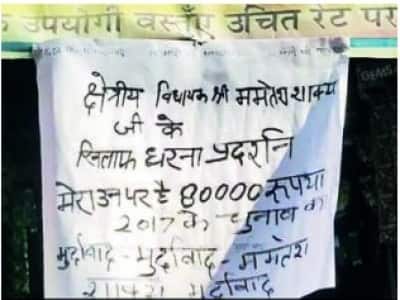 उपयोगी वस्तुएँ उचित रेट पर
क्षेत्रीय विधायक श्री ममतेश शाक्य
जी के
खिलाफ धरना प्रदर्शन
मेरा उन पर है 80000 रूपया
2017 के चुनाव का
मुर्दाबाद - मुर्दाबाद - ममतेश
शाक्य मुर्दाबाद